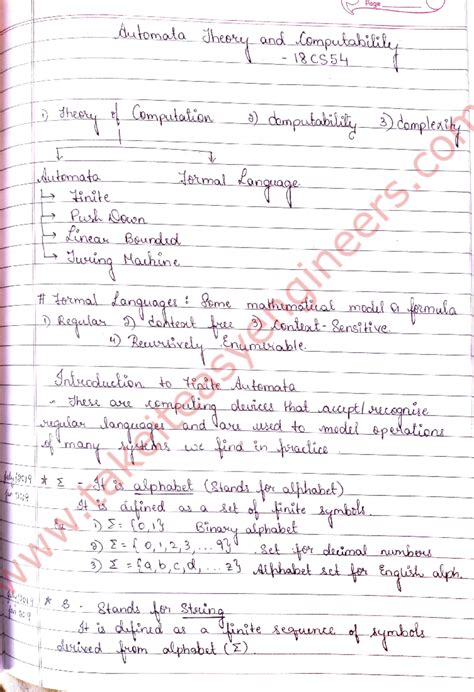 Page
Automata Theory and Computability
- 18CS54
1) Theory of Computation 2) Computability 3) Complexity
Automata Formal Language
→ Finite
→ Push Down
→ Linear Bounded
→ Turing Machine
# Formal Languages : Some mathematical model or formula
1) Regular 2) Context free 3) Context-Sensitive
4) Recursively Enumerable.
Introduction to Finite Automata
- These are computing devices that accept/recognise
regular languages and are used to model operations
of many systems we find in practice.
* Σ - It is alphabet (Stands for alphabet)
It is defined as a set of finite symbols.
1) Σ = {0,1} Binary alphabet
2) Σ = {0,1,2,3, ...9} Set for decimal numbers
3) Σ = {a,b,c,d, ... z} Alphabet set for English alph.
* S - Stands for String
It is defined as a finite sequence of symbols
derived from alphabet (Σ).
www.takeiteasyengineers.com